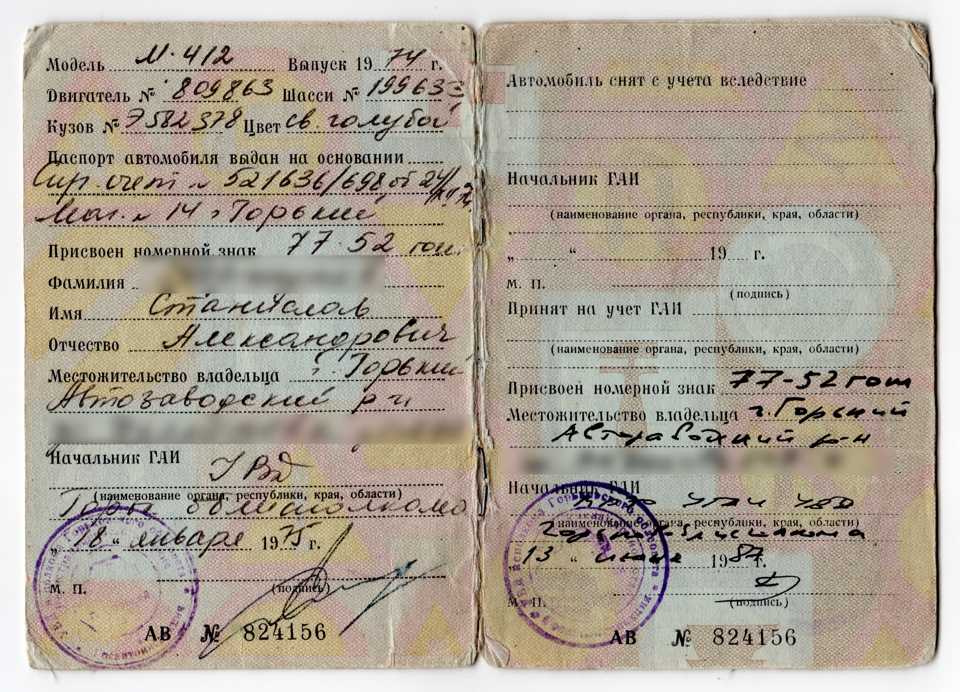 Модель М-412 Выпуск 1974 г.
Двигатель № 809863 Шасси № 199633
Кузов № Э582378 Цвет св. голубой
Паспорт автомобиля выдан на основании
Спр. счет № 521636/698 от 24/
Маг. № 14 г. Горький
Присвоен номерной знак 77-52 гош
Фамилия
Имя Станислав
Отчество Александрович
Местожительство владельца г. Горький
Автозаводский р-н
Начальник ГАИ УВД
(наименование органа, республики, края, области)
Горьк. облисполкома
„18“ января 1975 г.
М. П. (подпись)
АВ № 824156
Автомобиль снят с учета вследствие
Начальник ГАИ
(наименование органа, республики, края, области)
„ “ 19 г.
М. П. (подпись)
Принят на учет ГАИ
(наименование органа, республики, края, области)
Присвоен номерной знак 77-52 гош
Местожительство владельца г. Горький
Автозаводский р-н
Начальник ГАИ
УВД
(наименование органа, республики, края, области)
Горьк. облисполкома
13 “ июня 1987 г.
М. П. (подпись)
АВ № 824156